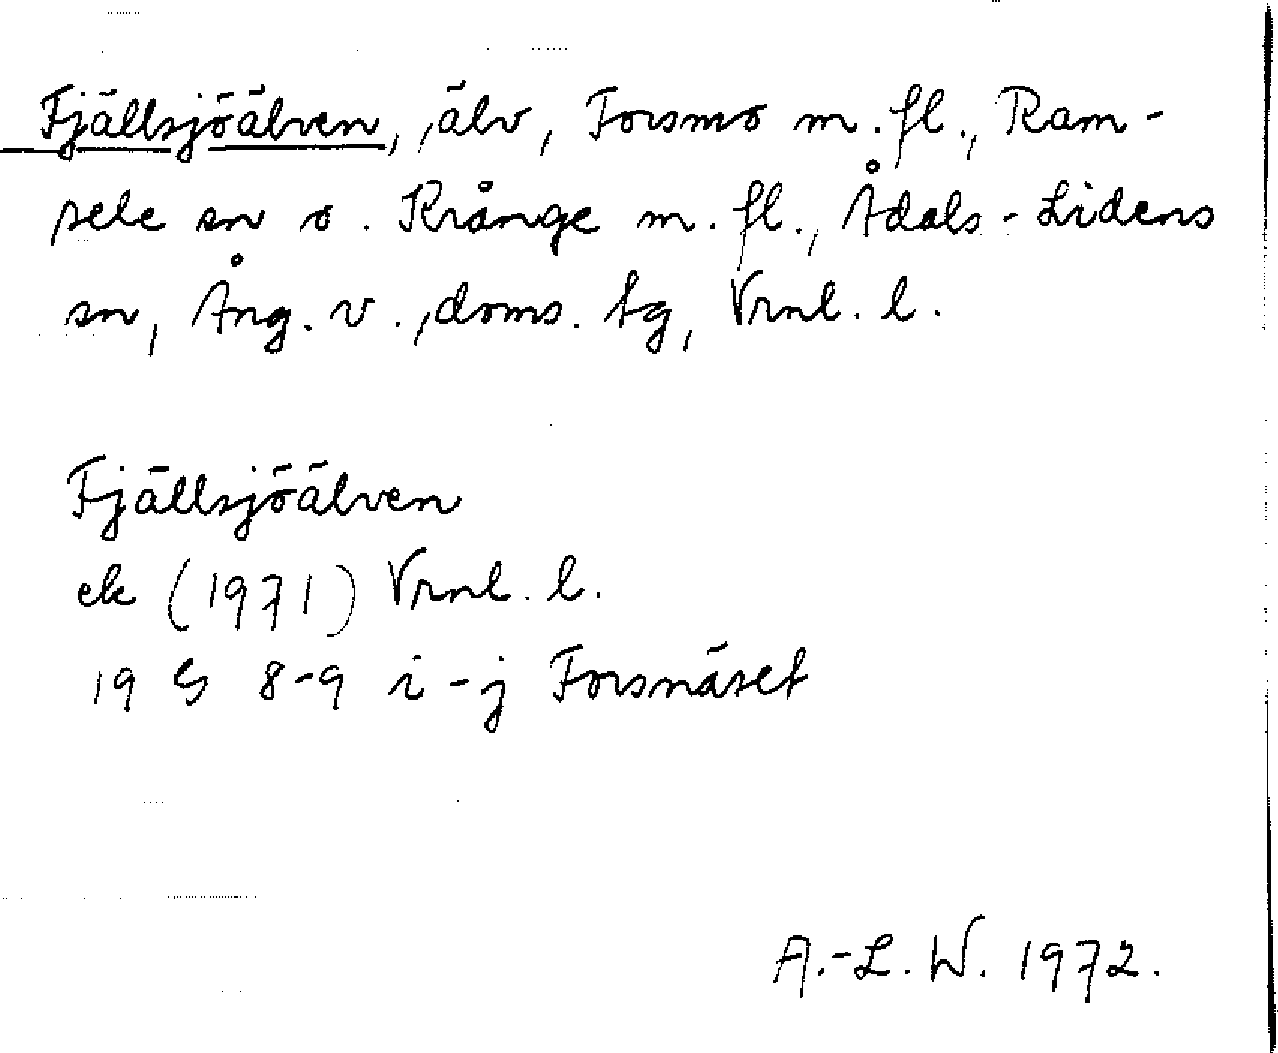 Fjällsjöälven, älv, Forsmo m. fl., Ram-
sele sn o. Krånge m. fl., Ådals-Lidens
sn, Ång. v., doms. tg, Vrnl. l.
Fjällsjöälven
ek (1971) Vrnl. l.
19 G 8-9 i-j Forsnäset
A.-L. W. 1972.